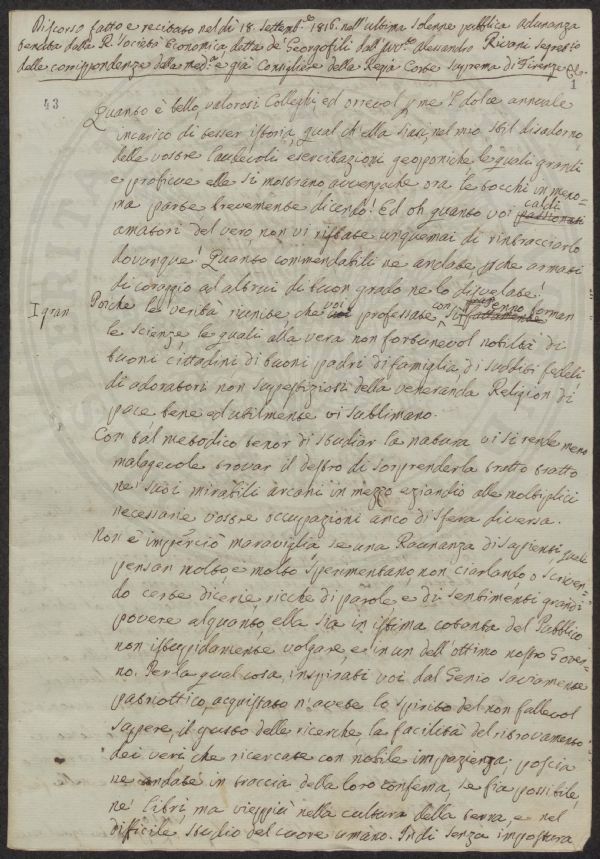 Discorso fatto e recitato nel dì 18. settemb.e 1816. nell'ultima solenne pubblica adunanza
tenuta dalla R. Società Economica detta de' Georgofili dall' Avv.to Alessandro Rivani Segretario
delle corrispondenze della med.a e già Consigliere della Regia Corte suprema di Firenze &c.
1
43
Quanto è bello, valorosi Colleghi, ed orrevol p me l' dolce annuale
incarico di tesser istoria, qual ch'ella siasi, nel mio stil disadorno
delle vostre laudevoli esercitazioni geoponiche le quali grandi
e proficue elle si mostrano avvengache ora le tocchi in meno=
ma parte brevemente dicendo! Ed oh quanto voi caldi passionati
amatori del vero non vi ristate unquemai di rintracciarlo
dovunque! Quanto commendabili ne andate, pche armati
di coraggio ad altrui di buon grado ne lo disvelate!
I gran Poiche le verità riunite che voi professate con puro senno forman
le scienze, le quali alla vera non fortunevol nobiltà di
buoni cittadini di buoni padri di famiglia, di sudditi fedeli
di adoratori non superstiziosi della veneranda Religion di
pace bene ed utilmente vi sublimano.
Con tal metodico tenor di studiar la natura vi si rende meno
malagevole trovar il destro di sorprenderla tratto tratto
ne' suoi mirabili arcani in mezzo eziandio alle moltiplici
necessarie vostre occupazioni anco di sfera diversa.
Non è imperciò maraviglia, se una Raunanza di sapienti, quale
pensan molto e molto sperimentano, non ciarlando o scriven=
do certe dicerie ricche di parole, e di sentimenti grandi
povere alquanto ella sia in istima cotanta del Pubblico
non istupidamente volgare, e in un dell' ottimo nostro Gover=
no. Per la qual cosa, inspirati voi dal Genio sacramente
patriottico, acquistato n'avete lo spirito del non fallevol
sapere, il gusto delle ricerche, la facilità del ritrovamento
dei veri che ricercate con nobile impazienza; poscia
ne andate in traccia della loro conferma, se fia possibile,
ne' libri, ma vieppiù nella cultura della terra, e nel
difficile studio del cuore umano. Indi senza impostura